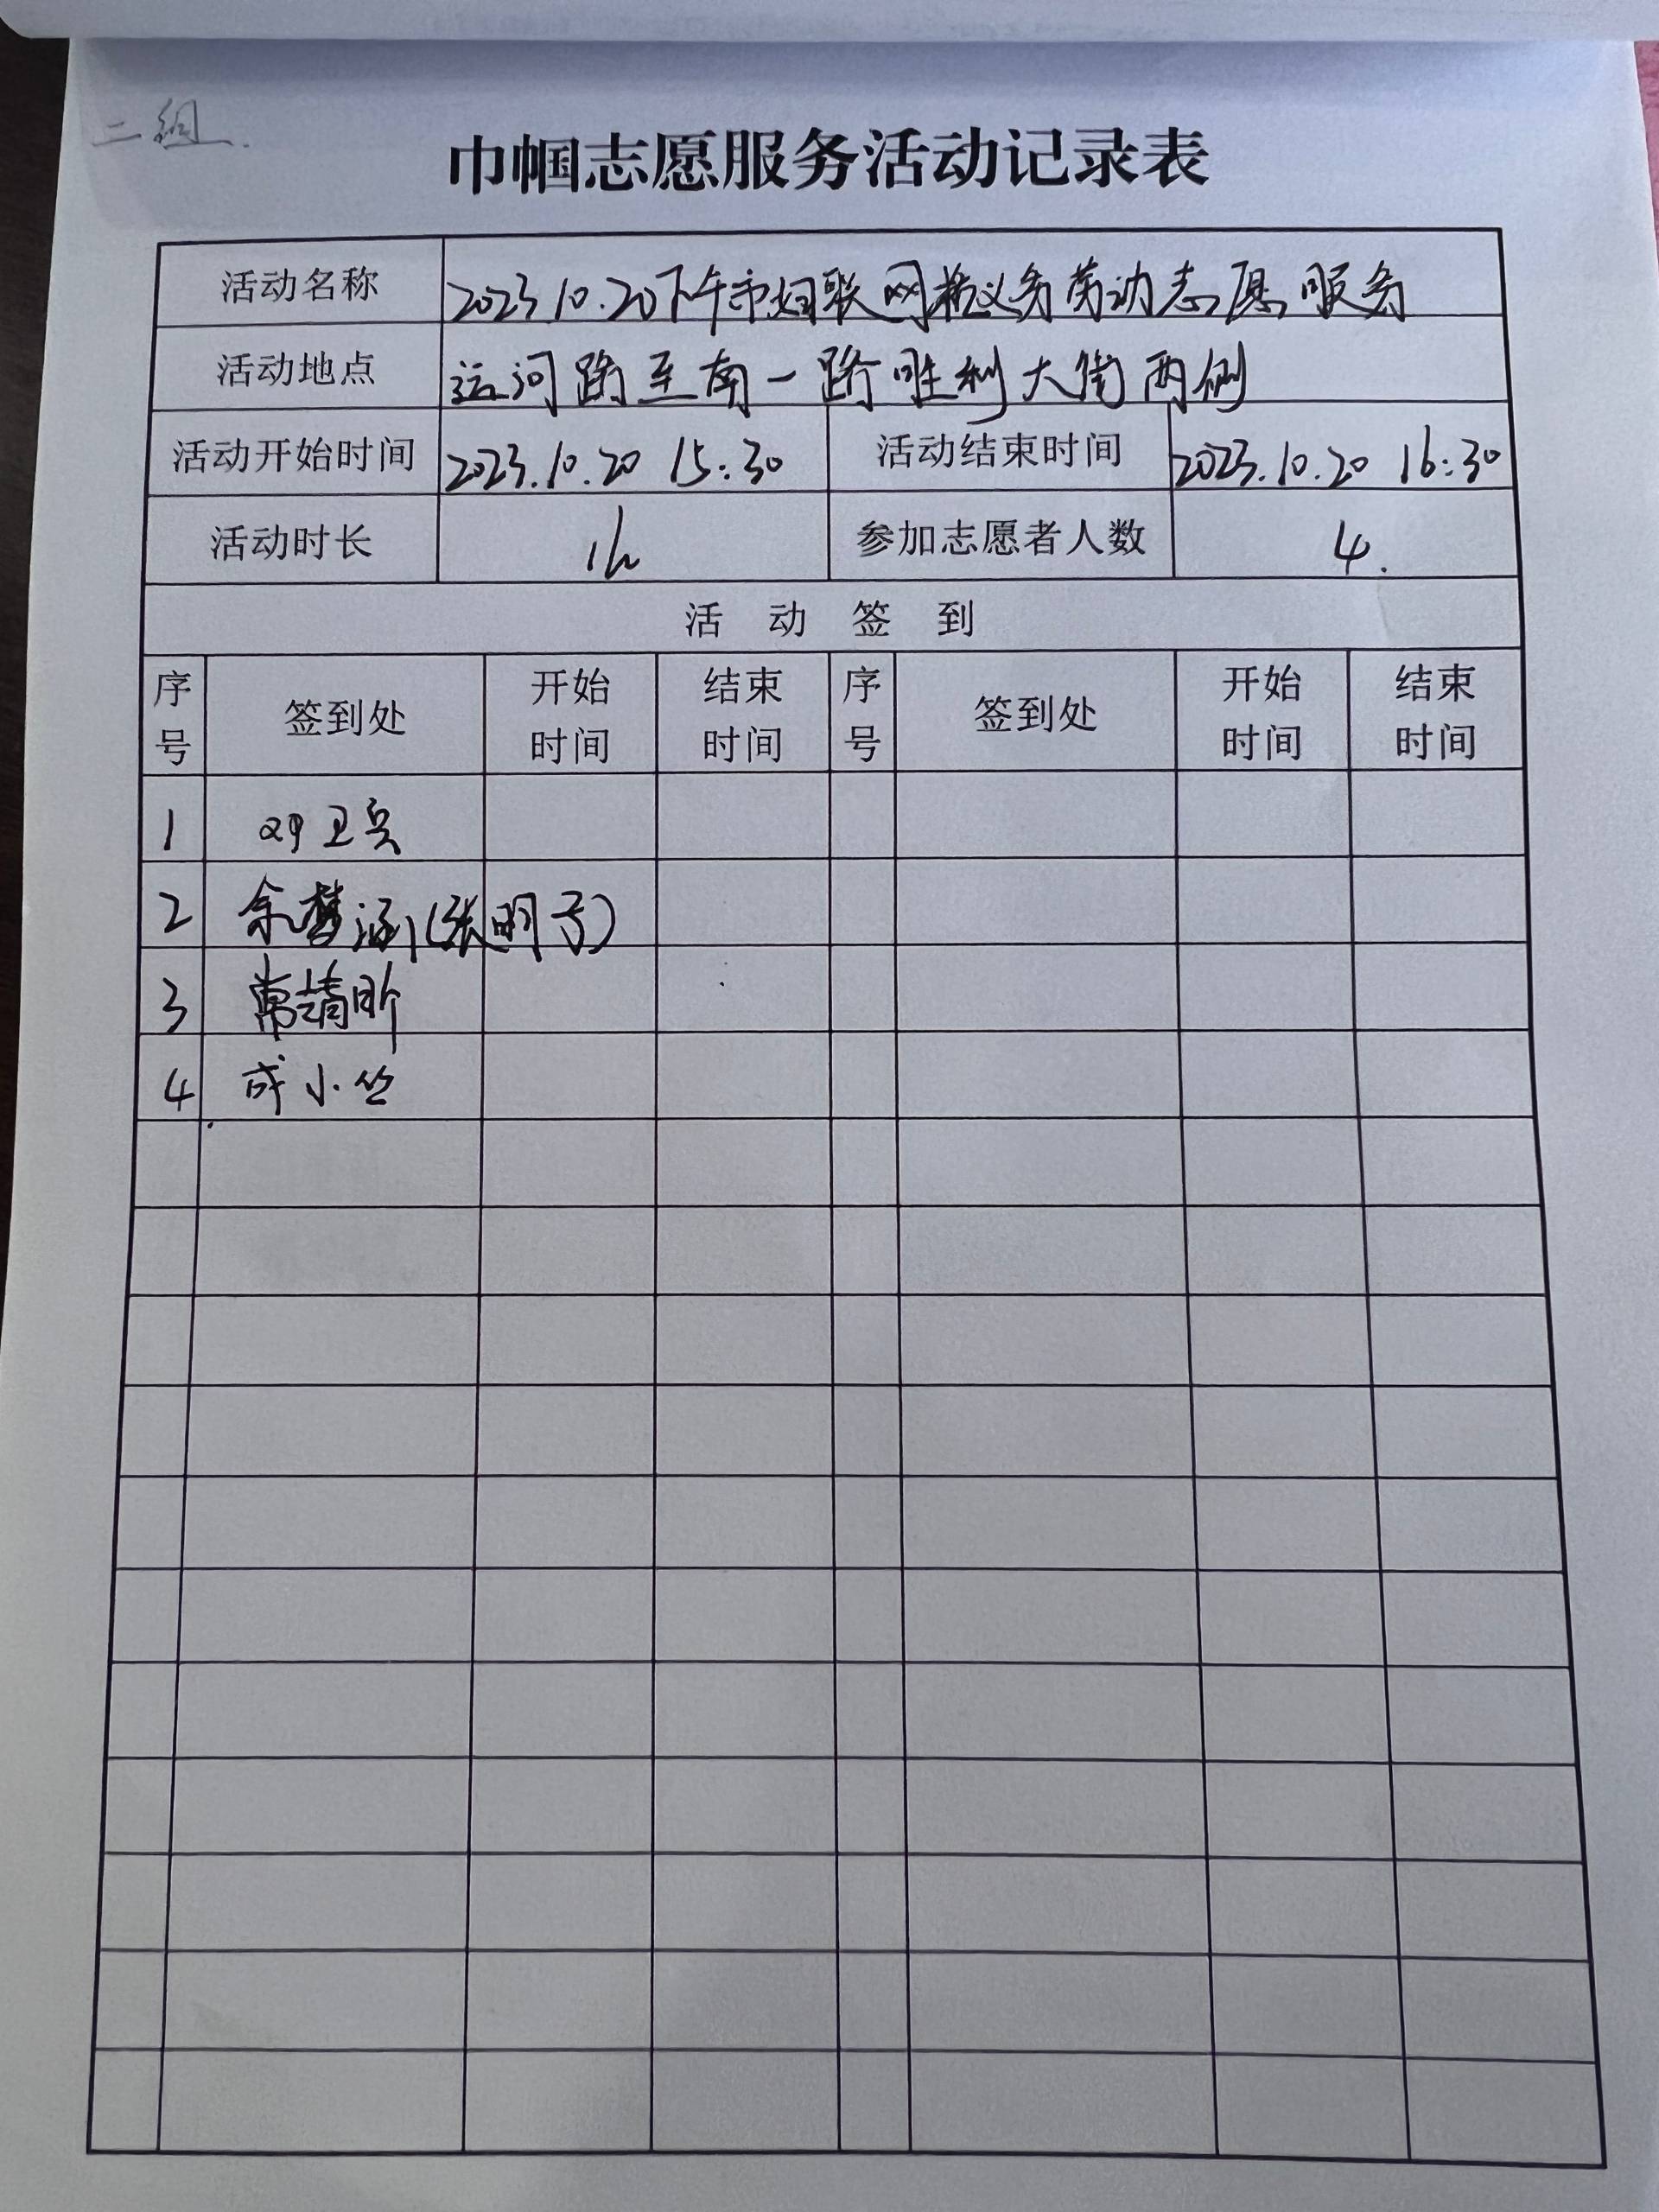 二组.
巾帼志愿服务活动记录表
活动名称 2023.10.20下午市妇联网格义务劳动志愿服务
活动地点 运河路至南一路胜利大街两侧
活动开始时间 2023.10.20 15:30 活动结束时间 2023.10.20 16:30
活动时长 1h 参加志愿者人数 4.
活动签到
序号 签到处 开始时间 结束时间 序号 签到处 开始时间 结束时间
1 卫兵
2 余梦涵(张明子)
3 常靖昕
4 成小竺